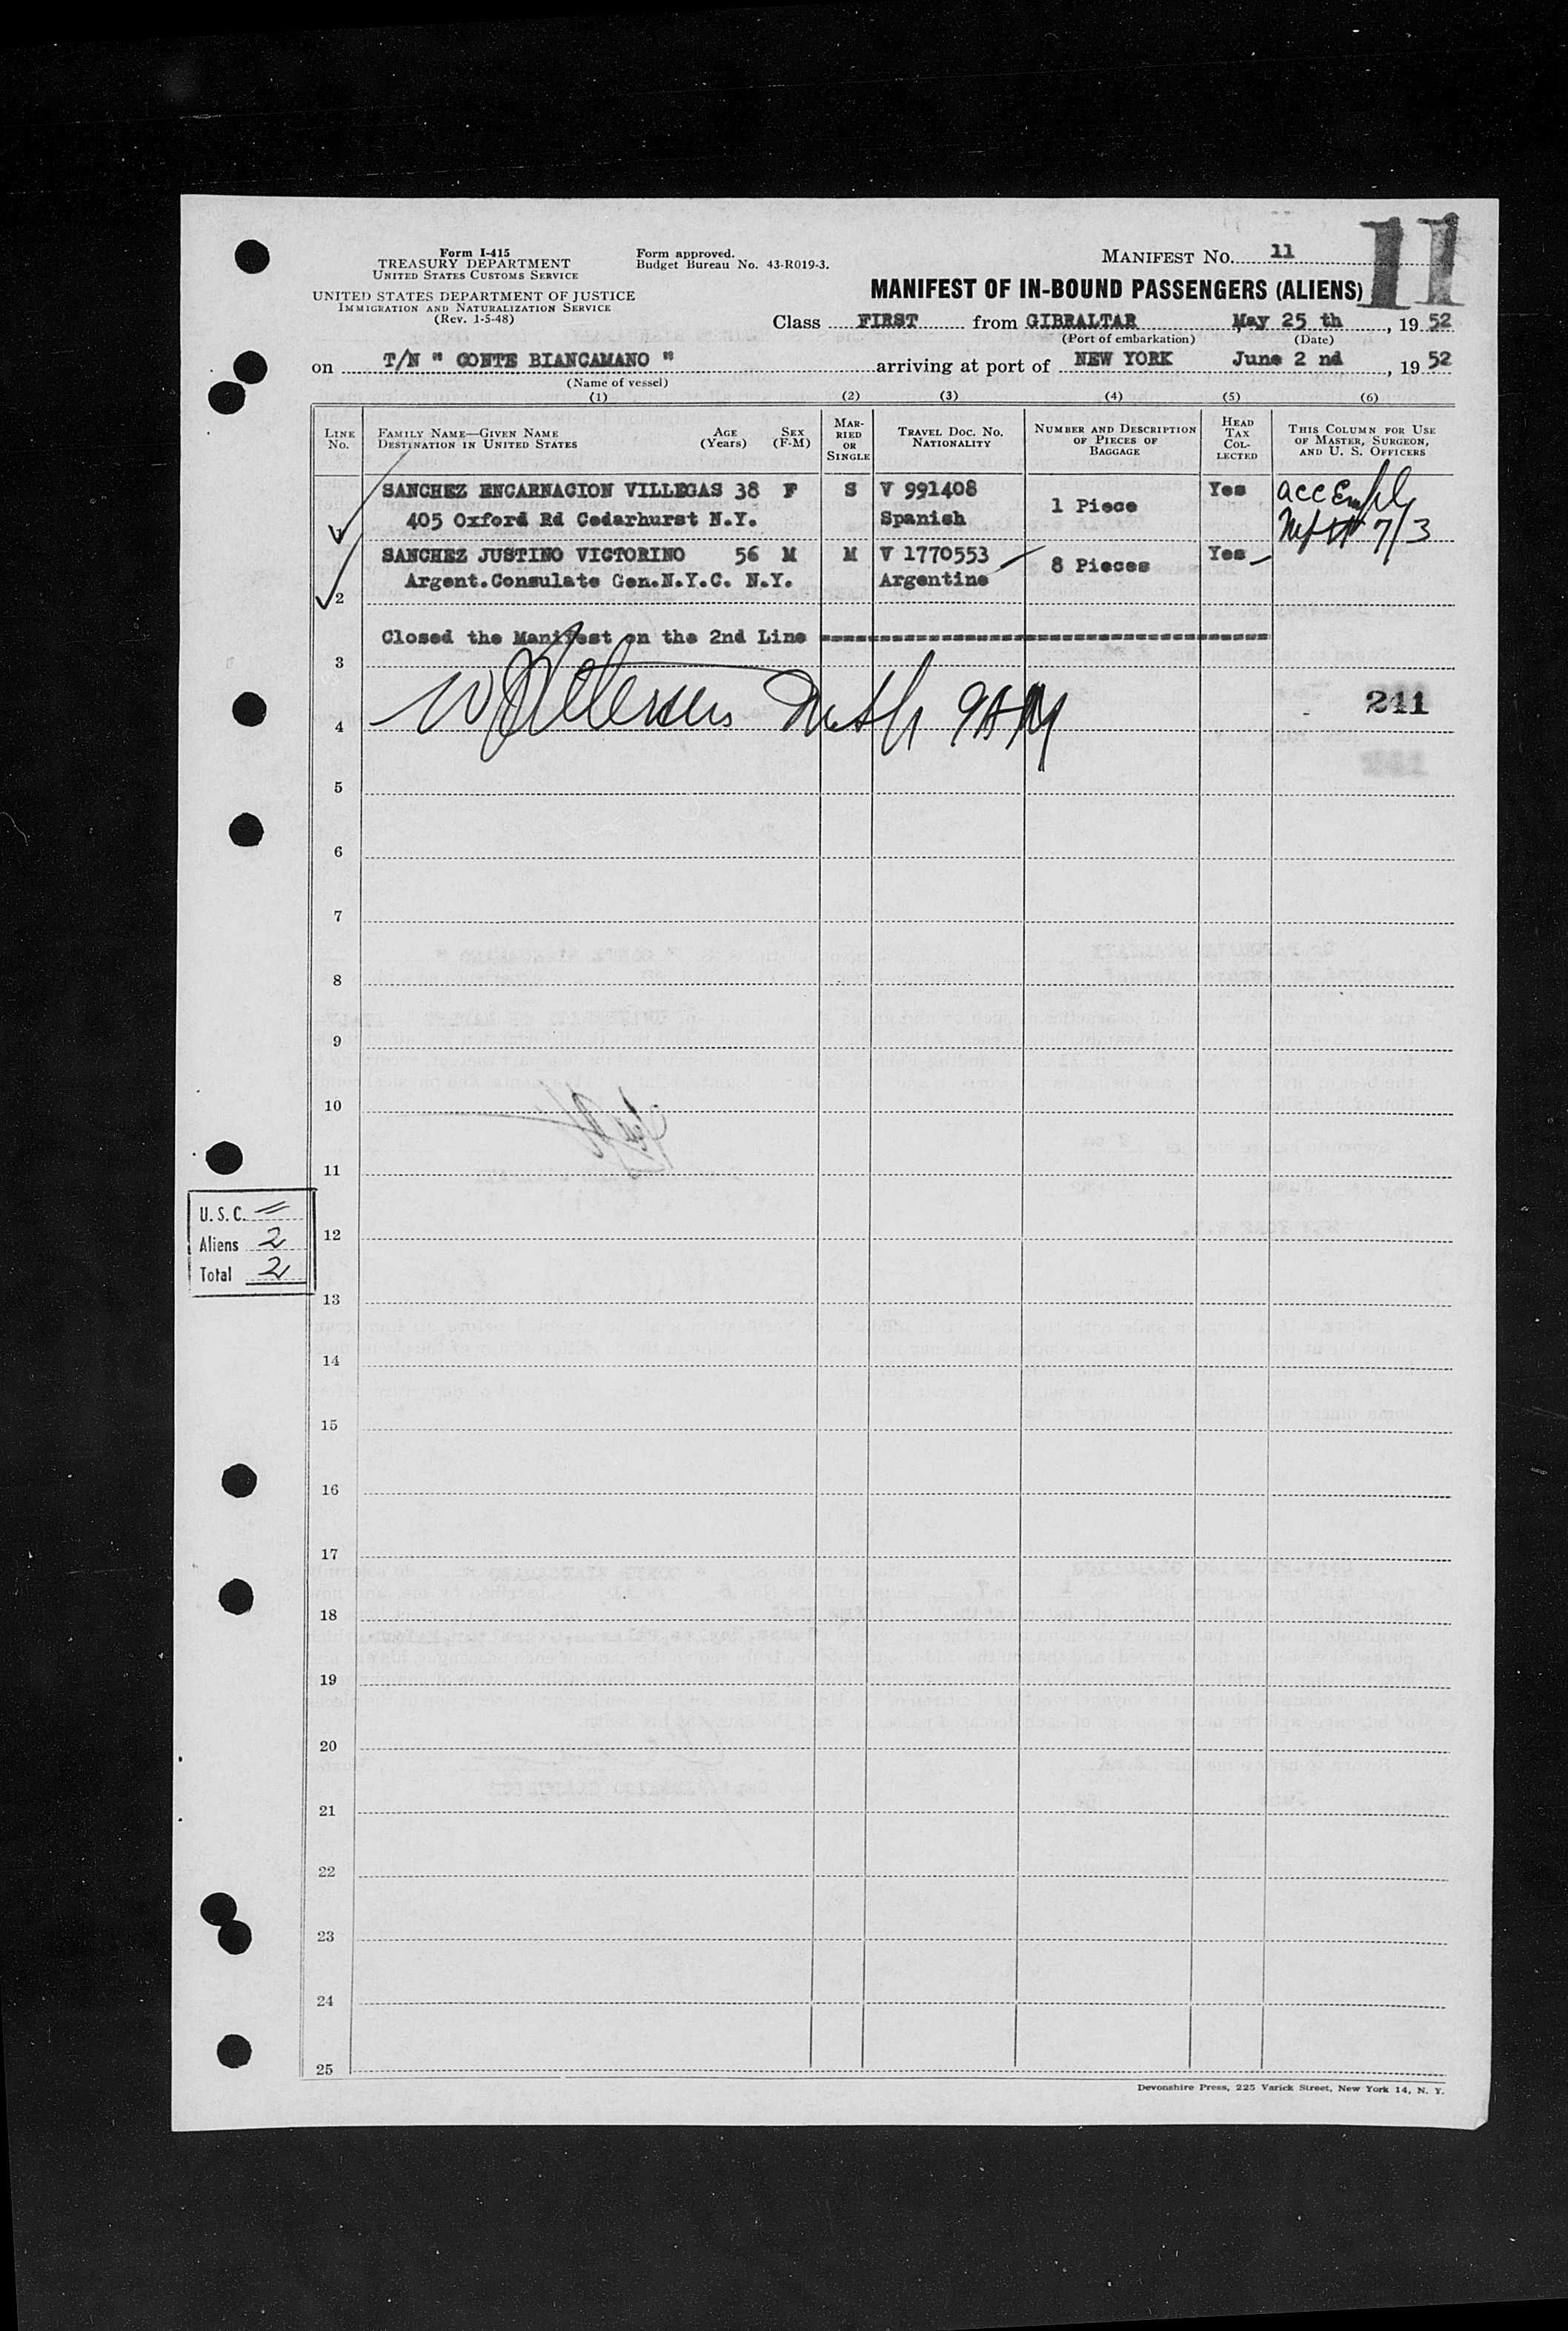 Form I-415
TREASURY DEPARTMENT
UNITED STATES CUSTOMS SERVICE
UNITED STATES DEPARTMENT OF JUSTICE
IMMIGRATION AND NATURALIZATION SERVICE
(Rev. 1-5-48)
Form approved.
Budget Bureau No. 43-R019-3.
MANIFEST No. 11
11
MANIFEST OF IN-BOUND PASSENGERS (ALIENS)
Class FIRST from GIBRALTAR May 25 th, 1952
(Port of embarkation) (Date)
on T/N " CONTE BIANCAMANO " arriving at port of NEW YORK June 2 nd, 1952
(Name of vessel)
(1) (2) (3) (4) (5) (6)
LINE No.
FAMILY NAME—GIVEN NAME
DESTINATION IN UNITED STATES
AGE (Years)
SEX (F-M)
MARRIED OR SINGLE
TRAVEL DOC. NO.
NATIONALITY
NUMBER AND DESCRIPTION
OF PIECES OF
BAGGAGE
HEAD
TAX
COLLECTED
THIS COLUMN FOR USE
OF MASTER, SURGEON,
AND U. S. OFFICERS
SANCHEZ ENCARNACION VILLEGAS 38 F S V 991408 1 Piece Yes
1 405 Oxford Rd Cedarhurst N.Y. Spanish 7/3
SANCHEZ JUSTINO VICTORINO 56 M M V 1770553 8 Pieces Yes
2 Argent.Consulate Gen.N.Y.C. N.Y. Argentine
Closed the Manifest on the 2nd Line
3
4 241
5
6
7
8
9
10
11
U. S. C.
Aliens 2
Total 2
12
13
14
15
16
17
18
19
20
21
22
23
24
25
Devonshire Press, 225 Varick Street, New York 14, N. Y.